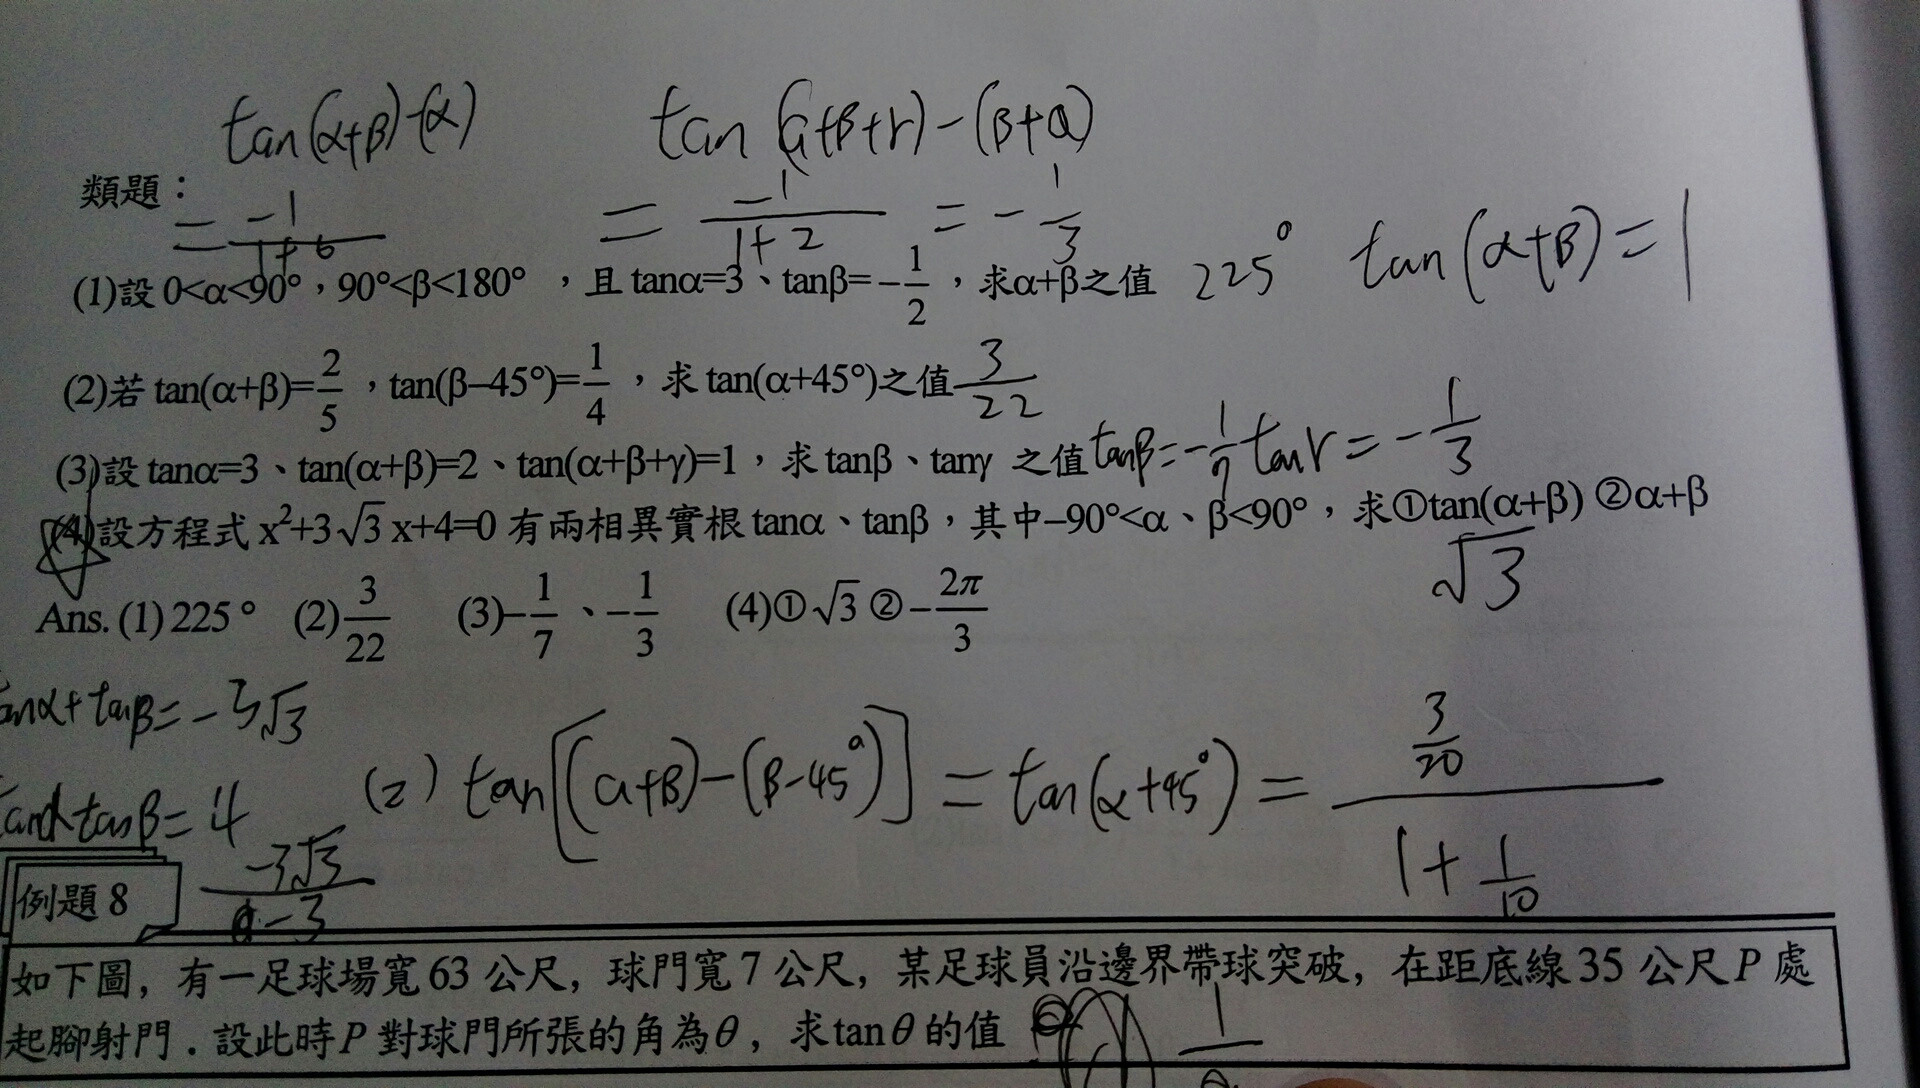 tan(α+β)-(α) tan(α+β+r)-(β+α)
類題：
= -1/(1+6) = -1/(1+2) = -1/3
(1)設 0<α<90°，90°<β<180° ，且 tanα=3、tanβ=-1/2，求α+β之值 225° tan(α+β)=1
(2)若 tan(α+β)=2/5，tan(β–45°)=1/4，求 tan(α+45°)之值 3/22
(3)設 tanα=3、tan(α+β)=2、tan(α+β+γ)=1，求 tanβ、tanγ 之值 tanβ=-1/7 tanr=-1/3
(4)設方程式 x²+3√3 x+4=0 有兩相異實根 tanα、tanβ，其中–90°<α、β<90°，求①tan(α+β) ②α+β
√3
Ans. (1) 225° (2)3/22 (3)–1/7、–1/3 (4)①√3 ②–2π/3
anα+tanβ=-3√3
(2) tan[(α+β)-(β-45°)]=tan(α+45°)= (3/20)/(1+1/10)
tanα tanβ=4
-3√3/-3
例題 8
如下圖，有一足球場寬 63 公尺，球門寬 7 公尺，某足球員沿邊界帶球突破，在距底線 35 公尺 P 處
起腳射門．設此時 P 對球門所張的角為θ，求 tanθ 的值